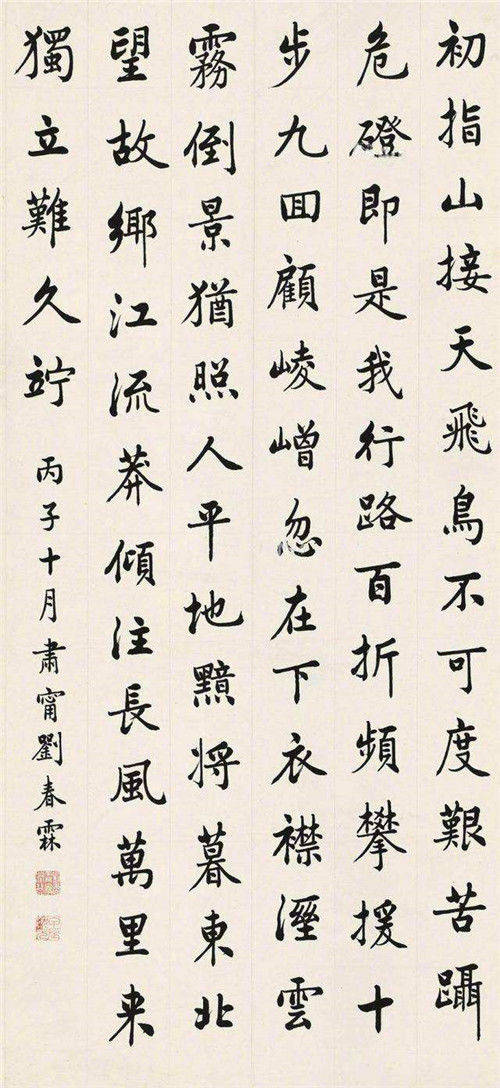 初指山接天飛鳥不可度艱苦躡
危磴即是我行路百折頻攀援十
步九囬顧崚嶒忽在下衣襟溼雲
霧倒景猶照人平地黯將暮東北
望故鄉江流莽傾注長風萬里来
獨立難久竚
丙子十月肅甯劉春霖